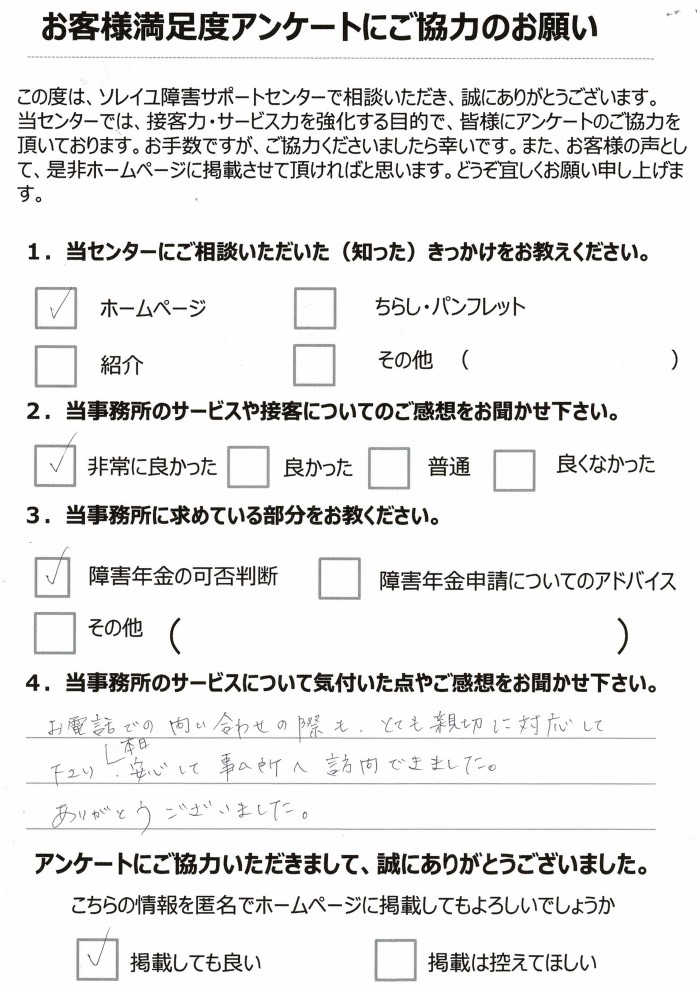 お客様満足度アンケートにご協力のお願い
この度は、ソレイユ障害サポートセンターで相談いただき、誠にありがとうございます。
当センターでは、接客力・サービス力を強化する目的で、皆様にアンケートのご協力を
頂いております。お手数ですが、ご協力くださいましたら幸いです。また、お客様の声とし
て、是非ホームページに掲載させて頂ければと思います。どうぞ宜しくお願い申し上げま
す。
1．当センターにご相談いただいた（知った）きっかけをお教えください。
✓ ホームページ ちらし・パンフレット
紹介 その他 （ ）
2．当事務所のサービスや接客についてのご感想をお聞かせ下さい。
✓ 非常に良かった 良かった 普通 良くなかった
3．当事務所に求めている部分をお教ください。
✓ 障害年金の可否判断 障害年金申請についてのアドバイス
その他 （ ）
4．当事務所のサービスについて気付いた点やご感想をお聞かせ下さい。
お電話での問い合わせの際も、とても親切に対応して
下さり、本日安心して事ム所へ訪問できました。
ありがとうございました。
アンケートにご協力いただきまして、誠にありがとうございました。
こちらの情報を匿名でホームページに掲載してもよろしいでしょうか
✓ 掲載しても良い 掲載は控えてほしい